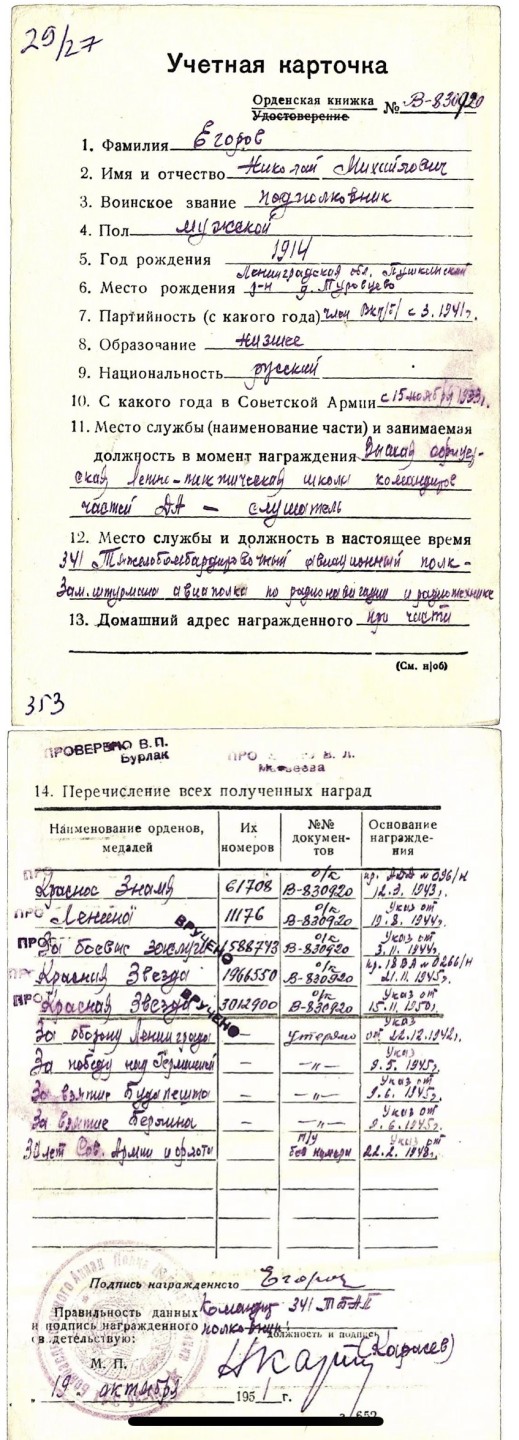 29/27
Учетная карточка
Орденская книжка
Удостоверение № В-830920
1. Фамилия Егоров
2. Имя и отчество Николай Михайлович
3. Воинское звание подполковник
4. Пол мужской
5. Год рождения 1914
Ленинградская обл. Пушкинский
6. Место рождения р-н д. Туровцево
7. Партийность (с какого года) член ВКП/б/ с 3. 1941г.
8. Образочание низшее
9. Национальность русский
10. С какого года в Советской Армии с 15 ноября 1933г.
11. Место службы (наименование части) и занимаемая
должность в момент награждения Высшая офицер-
ская Летно-тактическая школа командиров
частей ДА – слушатель
12. Место службы и должность в настоящее время
341 Тяжелобомбардировочный авиационный полк -
Зам. штурмана авиаполка по радионавигации и радиотехнике
13. Домашний адрес награжденного при части
(См. н|об)
353
ПРОВЕРЕНО В. П.
Бурлак
ПРО В. Л.
14. Перечисление всех полученных наград
Наименование орденов, медалей | Их номеров | №№ докумен- тов | Основание награжде- ния
Красное Знамя 61708 о/к В-830920 пр. АДД № 096/н 12.3. 1943г.
Ленина 11176 о/к В-830920 Указ от 19.8. 1944г.
За боевые заслуги 1588743 о/к В-830920 Указ от 3.11. 1944г.
ВРУЧЕНО
Красная Звезда 1966550 о/к В-830920 пр. 18 ВА № 0266/н 21.11. 1945г.
Красная Звезда 3012900 о/к В-830920 Указ от 15.11. 1950г.
ВРУЧЕНО
За оборону Ленинграда – утеряно Указ от 22.12.1942г.
За победу над Германией – –"– Указ 9.5. 1945г.
За взятие Будапешта – –"– Указ от 9.6. 1945г.
За взятие Берлина – –"– Указ от 9.6. 1945г.
30 лет Сов. Армии и флота п/у без номера Указ от 22.2. 1948г.
Подпись награжденного Егоров
Правильность данных Командир 341 ТБАП
и подпись награжденного полковник
свидетельствую: должность и подпись
(Карасев)
М. П.
„19" октября 1951 г.
з 652